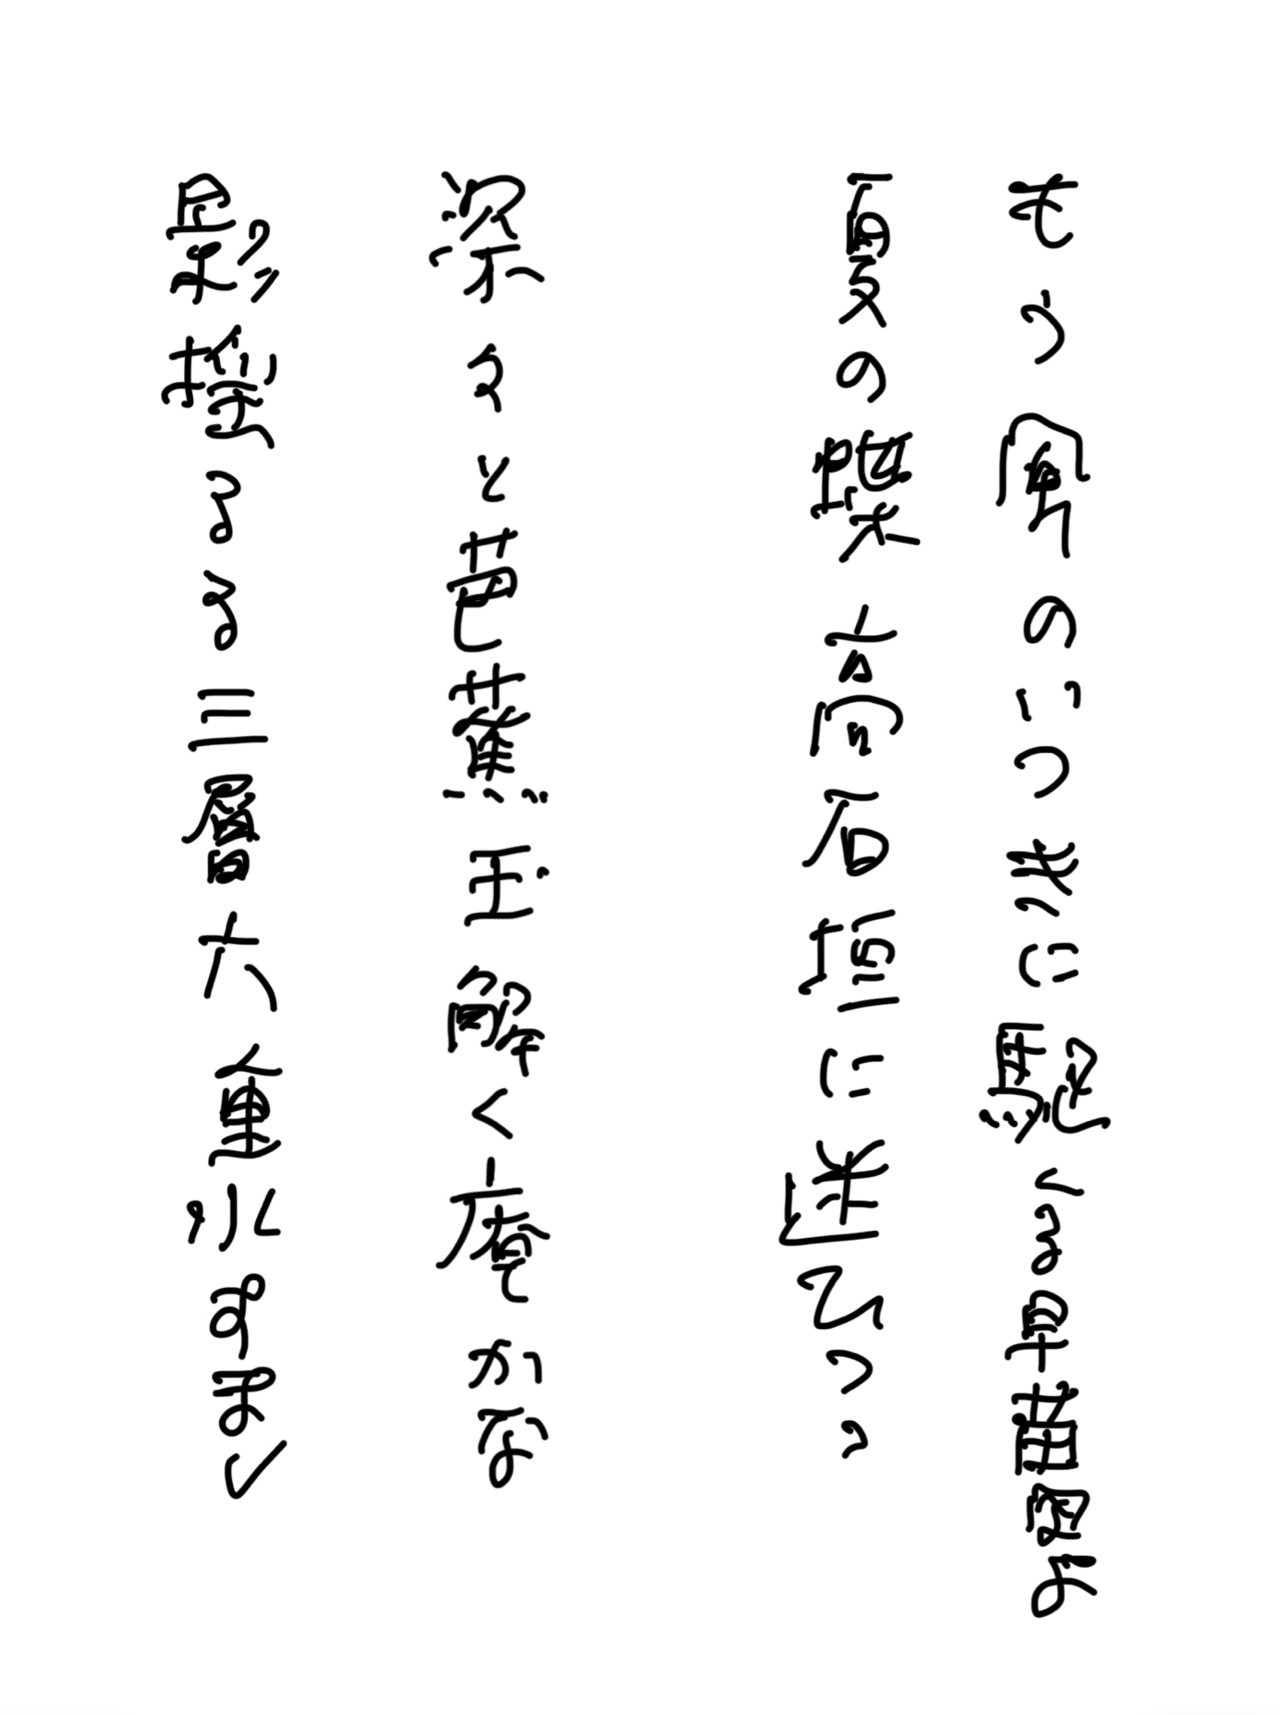 もう風のいつきに駆くる早苗田よ
夏の蝶高石垣に迷ひつつ
深々と芭蕉玉解く庵かな
影揺るる三層六重水すまし